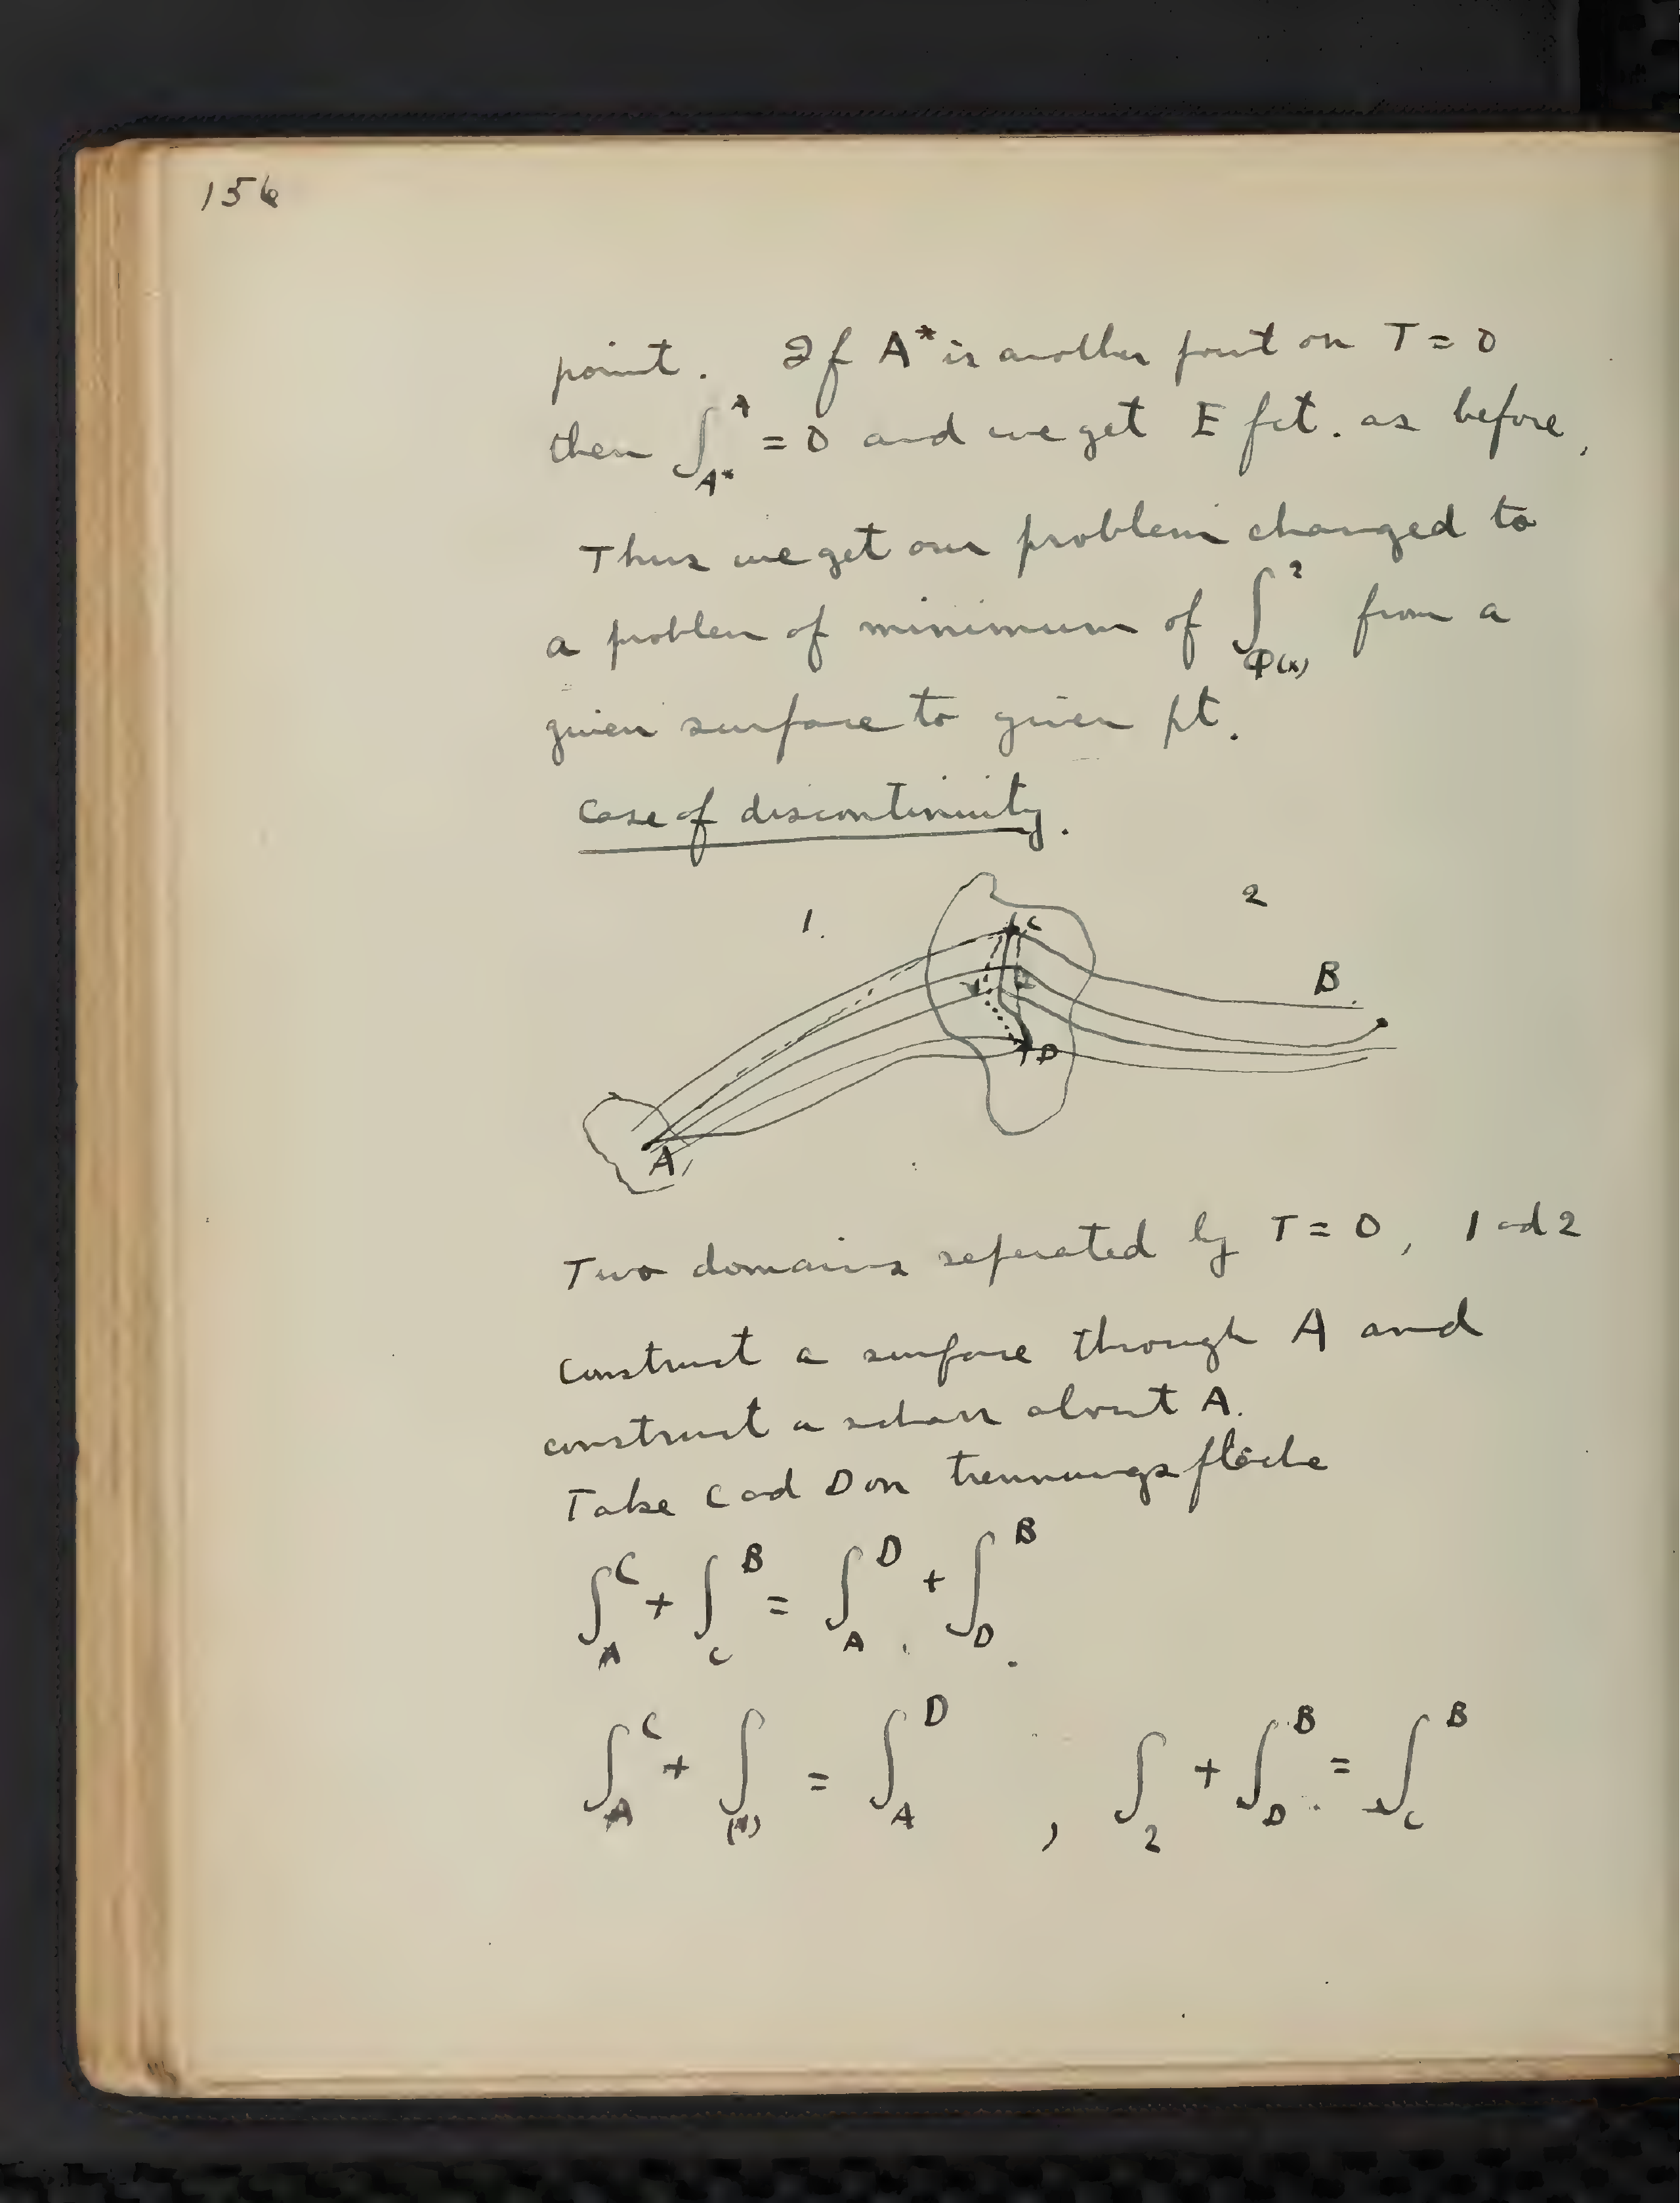 156
point. If A* is another point on T = 0
then ∫_{A*}^{A} = 0 and we get E fct. as before,
Thus we get our problem changed to
a problem of minimum of ∫_{Φ(x)}^{2} from a
given surface to given pt.
Case of discontinuity.
1. 2
C
B.
1 2
D
A
Two domains seperated by T = 0, 1 and 2
Construct a surface through A and
construct a schaar about A.
Take C and D on trennungsfläche
∫_{A}^{C} + ∫_{C}^{B} = ∫_{A}^{D} + ∫_{D}^{B}.
∫_{A}^{C} + ∫_{(1)} = ∫_{A}^{D} , ∫_{2} + ∫_{D}^{B} = ∫_{C}^{B}